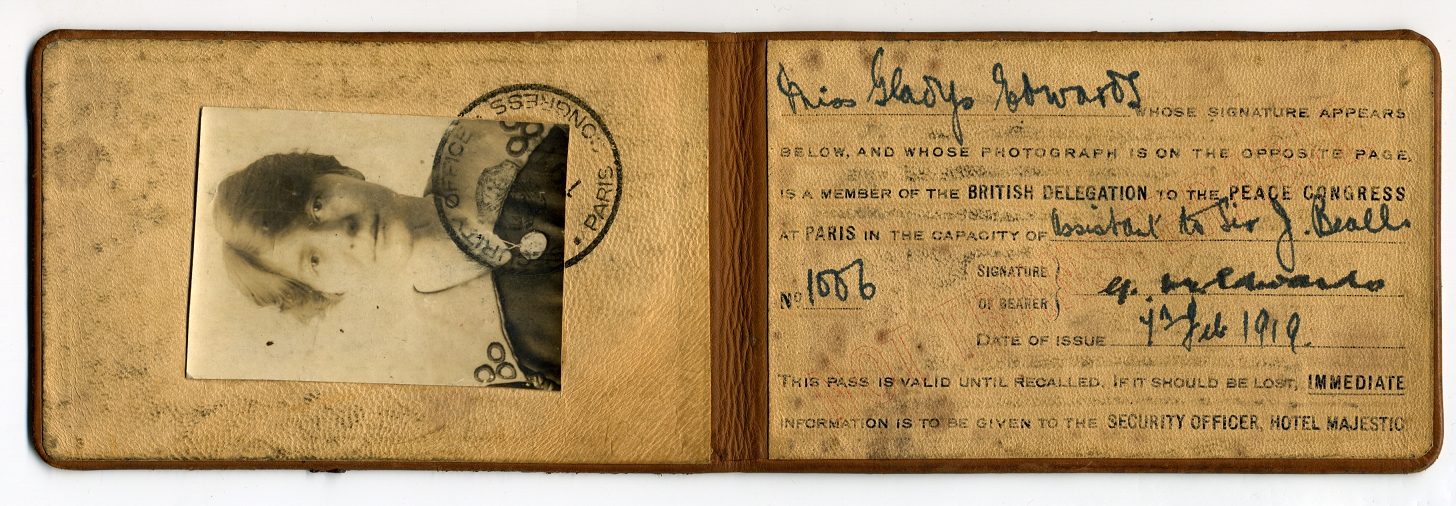 CONGRESS
OFFICE
PARIS
Miss Gladys Edwards WHOSE SIGNATURE APPEARS
BELOW, AND WHOSE PHOTOGRAPH IS ON THE OPPOSITE PAGE,
IS A MEMBER OF THE BRITISH DELEGATION TO THE PEACE CONGRESS
AT PARIS IN THE CAPACITY OF assistant to Sir J.
No 1006
SIGNATURE
OF BEARER G. Edwards
DATE OF ISSUE Feb 1919.
THIS PASS IS VALID UNTIL RECALLED. IF IT SHOULD BE LOST, IMMEDIATE
INFORMATION IS TO BE GIVEN TO THE SECURITY OFFICER, HOTEL MAJESTIC